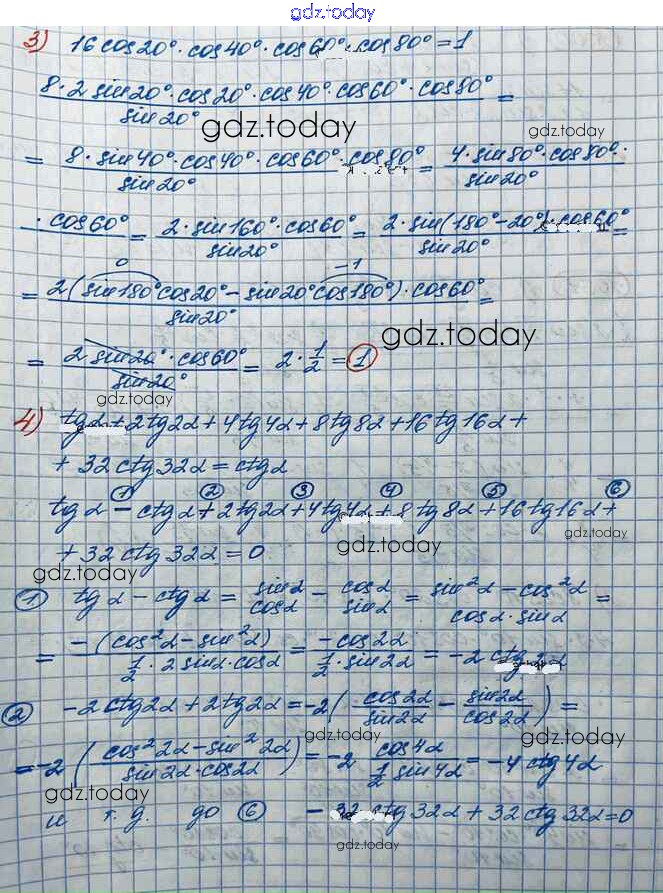 gdz.today
3) 16 cos20° · cos40° · cos60° · cos80° = 1
8 · 2 sin20° · cos20° · cos40° · cos60° · cos80° / sin20° =
gdz.today
gdz.today
= 8 · sin40° · cos40° · cos60° · cos80° / sin20° = 4 · sin80° · cos80° · / sin20°
· cos60° / = 2 · sin160° · cos60° / sin20° = 2 · sin(180° − 20°) · cos60° / sin20° =
0 −1
= 2 (sin180° cos20° − sin20° cos180°) · cos60° / sin20° =
gdz.today
= 2 sin20° · cos60° / sin20° = 2 · 1/2 = 1
gdz.today
4) tgα + 2tg2α + 4tg4α + 8tg8α + 16tg16α +
+ 32ctg32α = ctgα
① ② ③ ④ ⑤ ⑥
tgα − ctgα + 2tg2α + 4tg4α + 8tg8α + 16tg16α +
gdz.today
+ 32ctg32α = 0
gdz.today
① tgα − ctgα = sinα / cosα − cosα / sinα = sin²α − cos²α / cosα · sinα =
= −(cos²α − sin²α) / 1/2 · 2 sinα · cosα = −cos2α / 1/2 · sin2α = −2 ctg2α
② −2ctg2α + 2tg2α = −2 ( cos2α / sin2α − sin2α / cos2α ) =
gdz.today
gdz.today
= −2 ( cos²2α − sin²2α / sin2α · cos2α ) = −2 cos4α / 1/2 sin4α = −4 ctg4α
gdz.today
и т. д. до ⑥ − 32 ctg32α + 32 ctg32α = 0
gdz.today